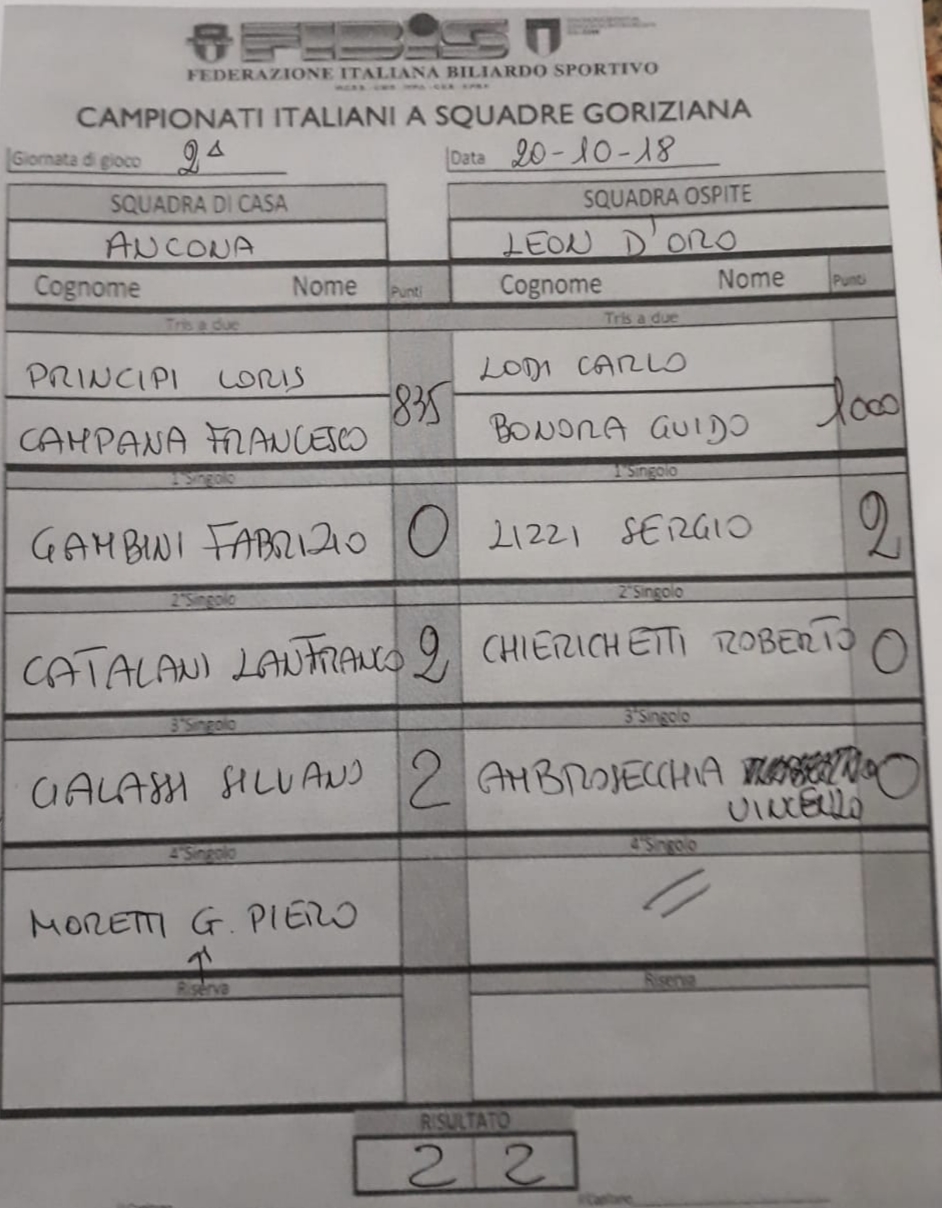 FIBiS
FEDERAZIONE ITALIANA BILIARDO SPORTIVO
CAMPIONATI ITALIANI A SQUADRE GORIZIANA
Giornata di gioco 2ª Data 20-10-18
SQUADRA DI CASA SQUADRA OSPITE
ANCONA LEON D'ORO
Cognome Nome Punti Cognome Nome Punti
Tris a due Tris a due
PRINCIPI LORIS 835 LODI CARLO 1000
CAMPANA FRANCESCO BONORA GUIDO
1°Singolo 1°Singolo
GAMBINI FABRIZIO 0 LIZZI SERGIO 2
2°Singolo 2°Singolo
CATALANI LANFRANCO 2 CHIERICHETTI ROBERTO 0
3°Singolo 3°Singolo
GALASSI SILVANO 2 AMBROSECCHIA 0
4°Singolo 4°Singolo
MORETTI G. PIERO //
Riserva Riserva
RISULTATO
2 2
Il Capitano